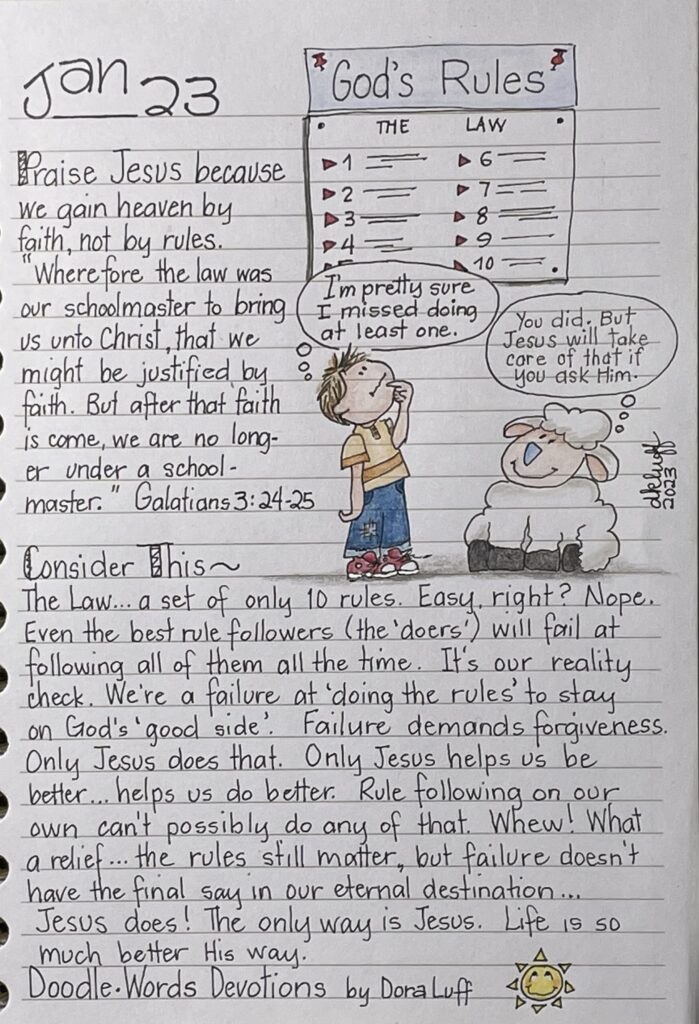 Jan 23
God's Rules
THE LAW
1 6
2 7
3 8
4 9
10
Praise Jesus because
we gain heaven by
faith, not by rules.
"Wherefore the law was
our schoolmaster to bring
us unto Christ, that we
might be justified by
faith. But after that faith
is come, we are no long-
er under a school-
master." Galatians 3:24-25
I'm pretty sure
I missed doing
at least one.
You did. But
Jesus will take
care of that if
you ask Him.
dkluff
2023
Consider This~
The Law... a set of only 10 rules. Easy, right? Nope.
Even the best rule followers (the 'doers') will fail at
following all of them all the time. It's our reality
check. We're a failure at 'doing the rules' to stay
on God's 'good side'. Failure demands forgiveness.
Only Jesus does that. Only Jesus helps us be
better... helps us do better. Rule following on our
own can't possibly do any of that. Whew! What
a relief... the rules still matter, but failure doesn't
have the final say in our eternal destination...
Jesus does! The only way is Jesus. Life is so
much better His way.
Doodle•Words Devotions by Dora Luff